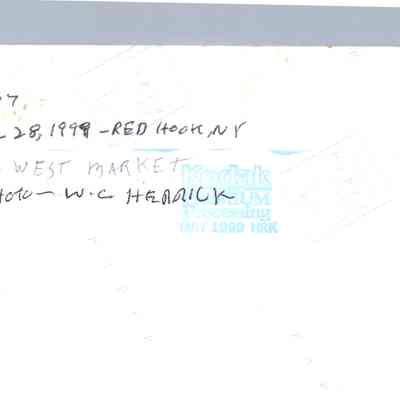 7
L 28, 1999 - RED HOOK, NY
WEST MARKET
HOTO - W.C HERRICK
Kodak
MUSEUM
Processing
MAY 1999 HRK